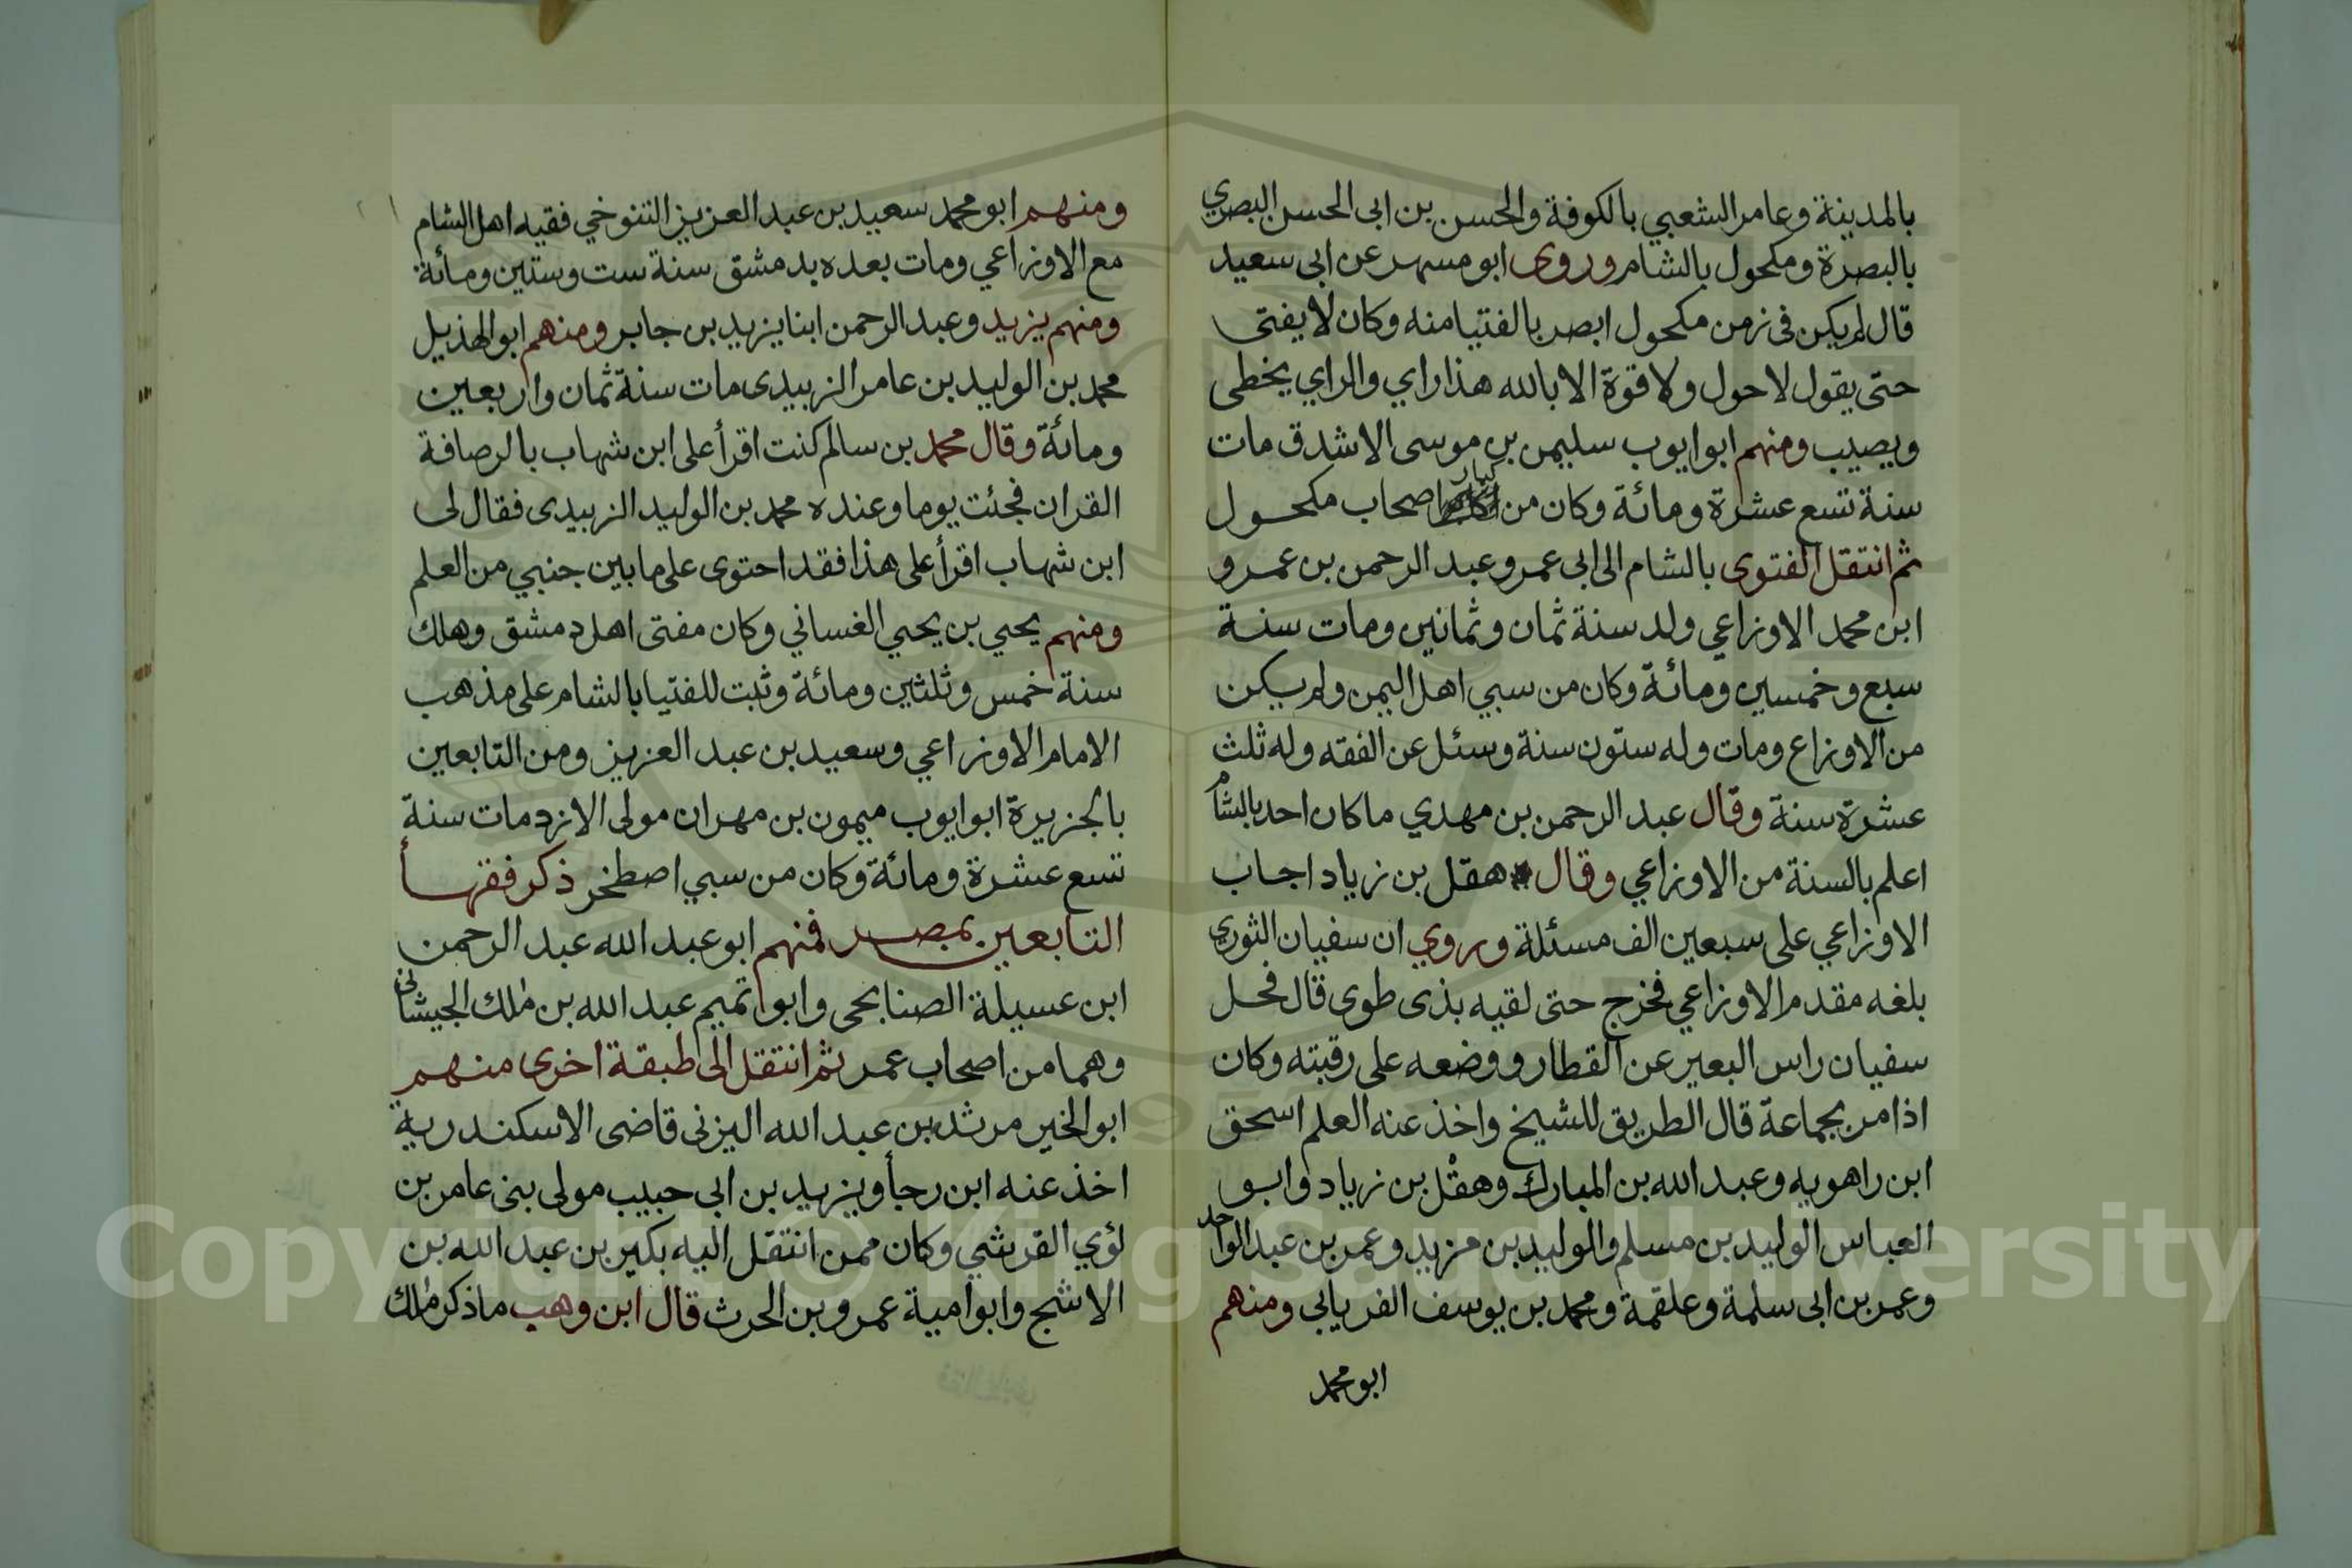 بالمدينة وعامر الشعبي بالكوفة والحسن بن ابى الحسن البصري
بالبصرة ومكحول بالشام وروى ابو مسهر عن ابى سعيد
قال لم يكن فى زمن مكحول ابصر بالفتيا منه وكان لا يفتى
حتى يقول لا حول ولا قوة الا بالله هذا راي والراي يخطى
ويصيب ومنهم ابو ايوب سليمن بن موسى الاشدق مات
سنة تسع عشرة ومائة وكان من كبار اصحاب مكحول
ثم انتقل الفتوى بالشام الى ابى عمرو عبد الرحمن بن عمرو
ابن محمد الاوزاعي ولد سنة ثمان وثمانين ومات سنة
سبع وخمسين ومائة وكان من سبي اهل اليمن ولم يكن
من الاوزاع ومات وله ستون سنة وسئل عن الفقه وله ثلث
عشرة سنة وقال عبد الرحمن بن مهدي ما كان احد بالشام
اعلم بالسنة من الاوزاعي وقال هقل بن زياد اجاب
الاوزاعي على سبعين الف مسئلة وروي ان سفيان الثوري
بلغه مقدم الاوزاعي فخرج حتى لقيه بذى طوى قال فحل
سفيان راس البعير عن القطار ووضعه على رقبته وكان
اذا مر بجماعة قال الطريق للشيخ واخذ عنه العلم اسحق
ابن راهويه وعبد الله بن المبارك وهقل بن زياد وابو
العباس الوليد بن مسلم والوليد بن مزيد وعمر بن عبد الواحد
وعمر بن ابى سلمة وعلقمة ومحمد بن يوسف الفريابي ومنهم
ابو محمد
ومنهم ابو محمد سعيد بن عبد العزيز التنوخي فقيه اهل الشام
مع الاوزاعي ومات بعده بدمشق سنة ست وستين ومائة
ومنهم يزيد وعبد الرحمن ابنا يزيد بن جابر ومنهم ابو الهذيل
محمد بن الوليد بن عامر الزبيدى مات سنة ثمان واربعين
ومائة وقال محمد بن سالم كنت اقرأ على ابن شهاب بالرصافة
القران فجئت يوما وعنده محمد بن الوليد الزبيدى فقال لى
ابن شهاب اقرأ على هذا فقد احتوى على ما بين جنبي من العلم
ومنهم يحيي بن يحيي الغساني وكان مفتى اهل دمشق وهلك
سنة خمس وثلثين ومائة وثبت للفتيا بالشام على مذهب
الامام الاوزاعي وسعيد بن عبد العزيز ومن التابعين
بالجزيرة ابو ايوب ميمون بن مهران مولى الازد مات سنة
تسع عشرة ومائة وكان من سبي اصطخر ذكر فقهأ
التابعين بمصر فمنهم ابو عبد الله عبد الرحمن
ابن عسيلة الصنابحى وابو تميم عبد الله بن ملك الجيشانى
وهما من اصحاب عمر ثم انتقل الى طبقة اخرى منهم
ابو الخير مرثد بن عبد الله اليزنى قاضى الاسكندرية
اخذ عنه ابن رجأ ويزيد بن ابى حبيب مولى بنى عامر بن
لؤي القرشي وكان ممن انتقل اليه بكير بن عبد الله بن
الاشج وابو امية عمرو بن الحرث قال ابن وهب ما ذكر ملك
Copyright © King Saud University